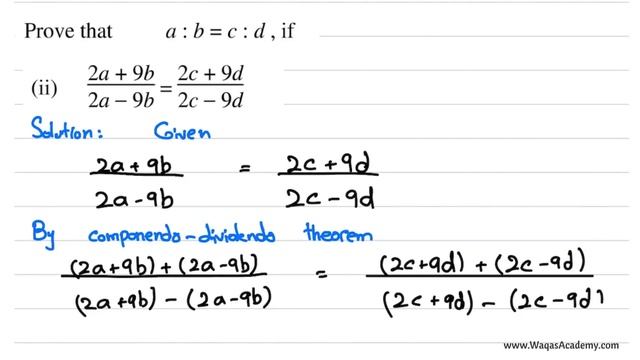 Prove that a : b = c : d , if
(ii) (2a + 9b)/(2a − 9b) = (2c + 9d)/(2c − 9d)
Solution: Given
(2a + 9b)/(2a - 9b) = (2c + 9d)/(2c - 9d)
By componendo-dividendo theorem
((2a+9b) + (2a-9b))/((2a+9b) - (2a-9b)) = ((2c+9d) + (2c-9d))/((2c+9d) - (2c-9d))
www.WaqasAcademy.com